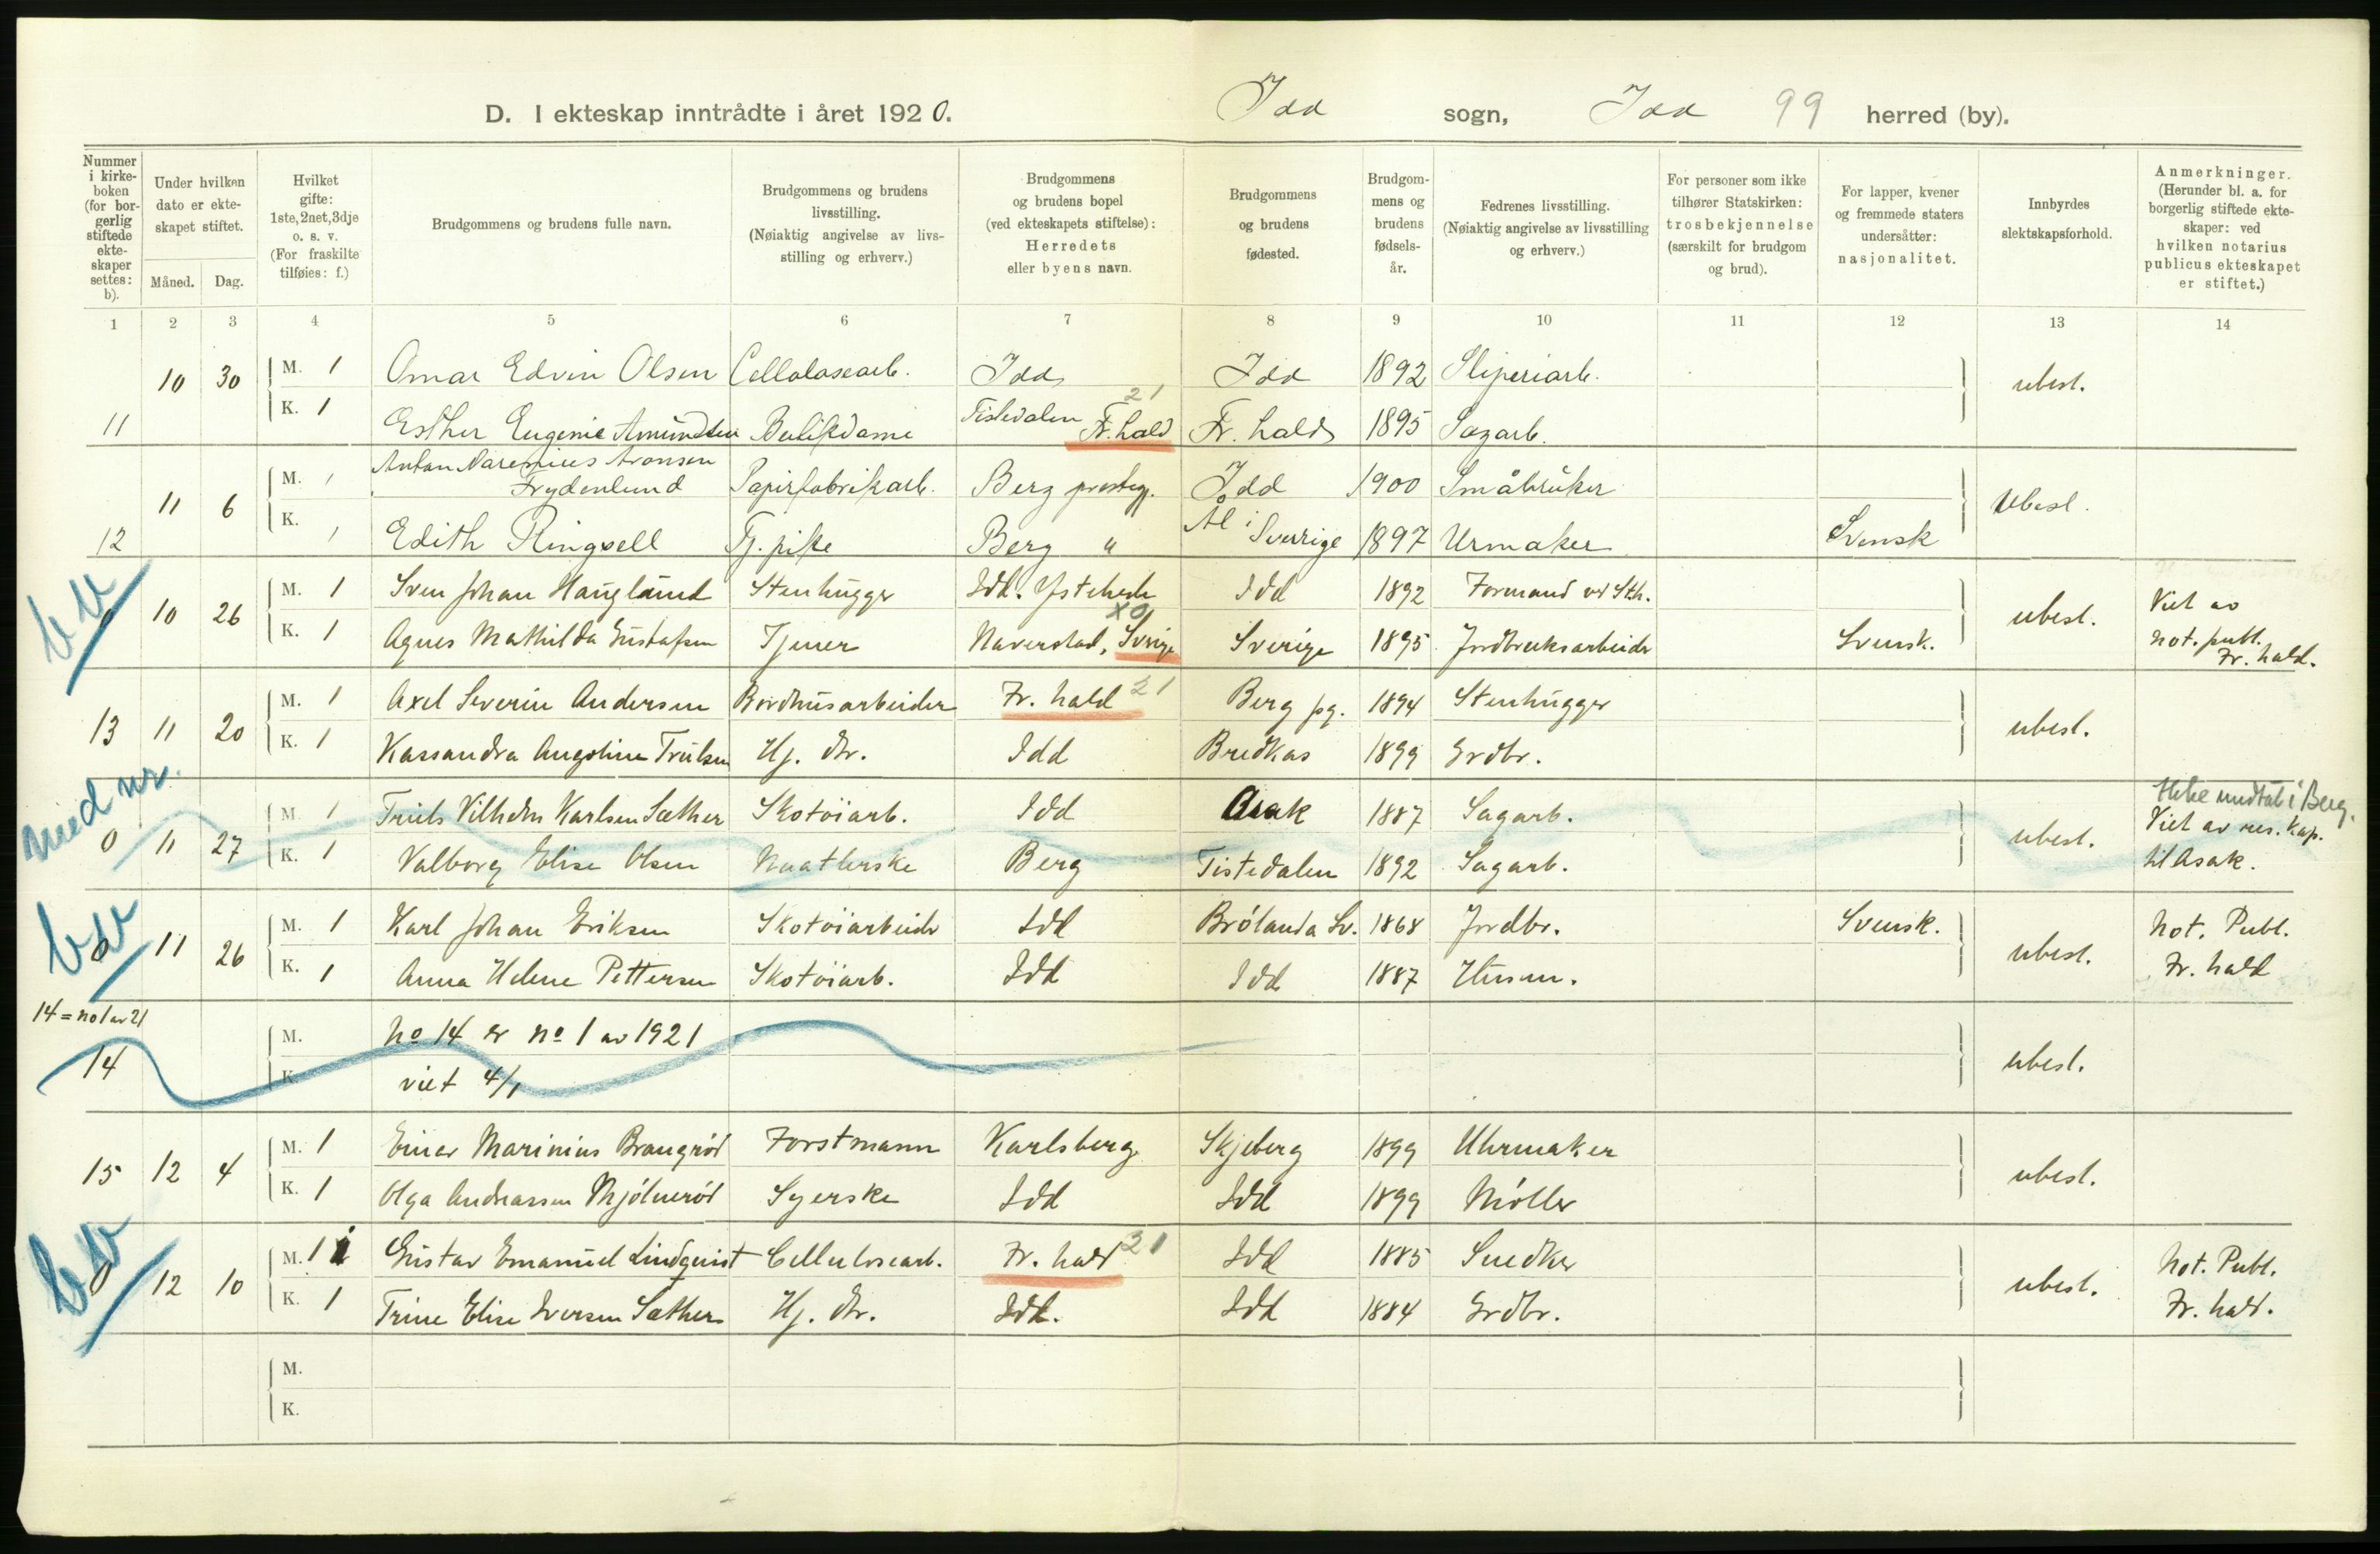 D. I ekteskap inntrådte i året 1920. Idd sogn, Idd 99 herred (by).
Nummer i kirkeboken (for borgerlig stiftede ekteskaper settes: b).
Under hvilken dato er ekteskapet stiftet.
Måned. Dag.
Hvilket gifte: 1ste, 2net, 3dje o. s. v. (For fraskilte tilføies: f.)
Brudgommens og brudens fulle navn.
Brudgommens og brudens livsstilling. (Nøiaktig angivelse av livsstilling og erhverv.)
Brudgommens og brudens bopel (ved ekteskapets stiftelse): Herredets eller byens navn.
Brudgommens og brudens fødested.
Brudgommens og brudens fødselsår.
Fedrenes livsstilling. (Nøiaktig angivelse av livsstilling og erhverv.)
For personer som ikke tilhører Statskirken: trosbekjennelse (særskilt for brudgom og brud).
For lapper, kvener og fremmede staters undersåtter: nasjonalitet.
Innbyrdes slektskapsforhold.
Anmerkninger. (Herunder bl. a. for borgerlig stiftede ekteskaper: ved hvilken notarius publicus ekteskapet er stiftet.)
1 2 3 4 5 6 7 8 9 10 11 12 13 14
10 30 M. 1 Omar Edvin Olsen Cellulosearb. Idd Idd 1892 Sliperiarb. ubesl.
11 K. 1 Esther Eugenie Amundsen Butikdame Tistedalen Fr.hald 21 Fr. hald 1895 Sagarb.
11 6 M. 1 Anton Narenius Aronsen Frydenlund Papirfabrikarb. Berg prestegj. Idd 1900 Småbruker Ubesl.
12 K. 1 Edith Ringsell Tj. pike Berg " Ål i Sverige 1897 Urmaker Svensk
bv 0 10 26 M. 1 Sven Johan Hauglund Stenhugger Idd. Ystehede Idd 1892 Formand ved Sth. ubesl. Viet av
K. 1 Agnes Mathilda Gustafsen Tjener Naverstad, Sverige X0 Sverige 1895 Jordbruksarbeider Svensk. not. publ. Fr. hald.
13 11 20 M. 1 Axel Severin Andersen Bordhusarbeider Fr. hald 21 Berg pg. 1894 Stenhugger ubesl.
K. 1 Kassandra Angoline Trulsen Hj. dtr. Idd Bredkas 1899 Grdbr.
med nr.
0 11 27 M. 1 Truls Vilhelm Karlsen Sæther Skotöiarb. Idd Asak 1887 Sagarb. ubesl. Ikke medtat i Berg. Viet av res. kap.
K. 1 Valborg Elise Olsen Naatlerske Berg Tistedalen 1892 Sagarb. til Asak.
bv 0 11 26 M. 1 Karl Johan Eriksen Skotöiarbeider Idd Brólanda Sv. 1868 Jordbr. Svensk. ubesl. Not. Publ.
K. 1 Anna Helene Pettersen Skotöiarb. Idd Idd 1887 Husm. Fr. hald
14 = no 1 av 21
14 M. No 14 er no 1 av 1921 ubesl.
K. viet 4/1
15 12 4 M. 1 Einar Marinius Brangröd Forstmann Karlsberg Skjeberg 1899 Uhrmaker ubesl.
K. 1 Olga Andreassen Mjölneröd Syerske Idd Idd 1899 Möller
bv 0 12 10 M. 1 Gustav Emanuel Lindquist Cellulosearb. Fr. hald 21 Idd 1885 Snedker ubesl. Not. Publ.
K. 1 Trine Elise Iversen Sæther Hj. dtr. Idd. Idd 1884 Grdbr. Fr. hald.
M.
K.